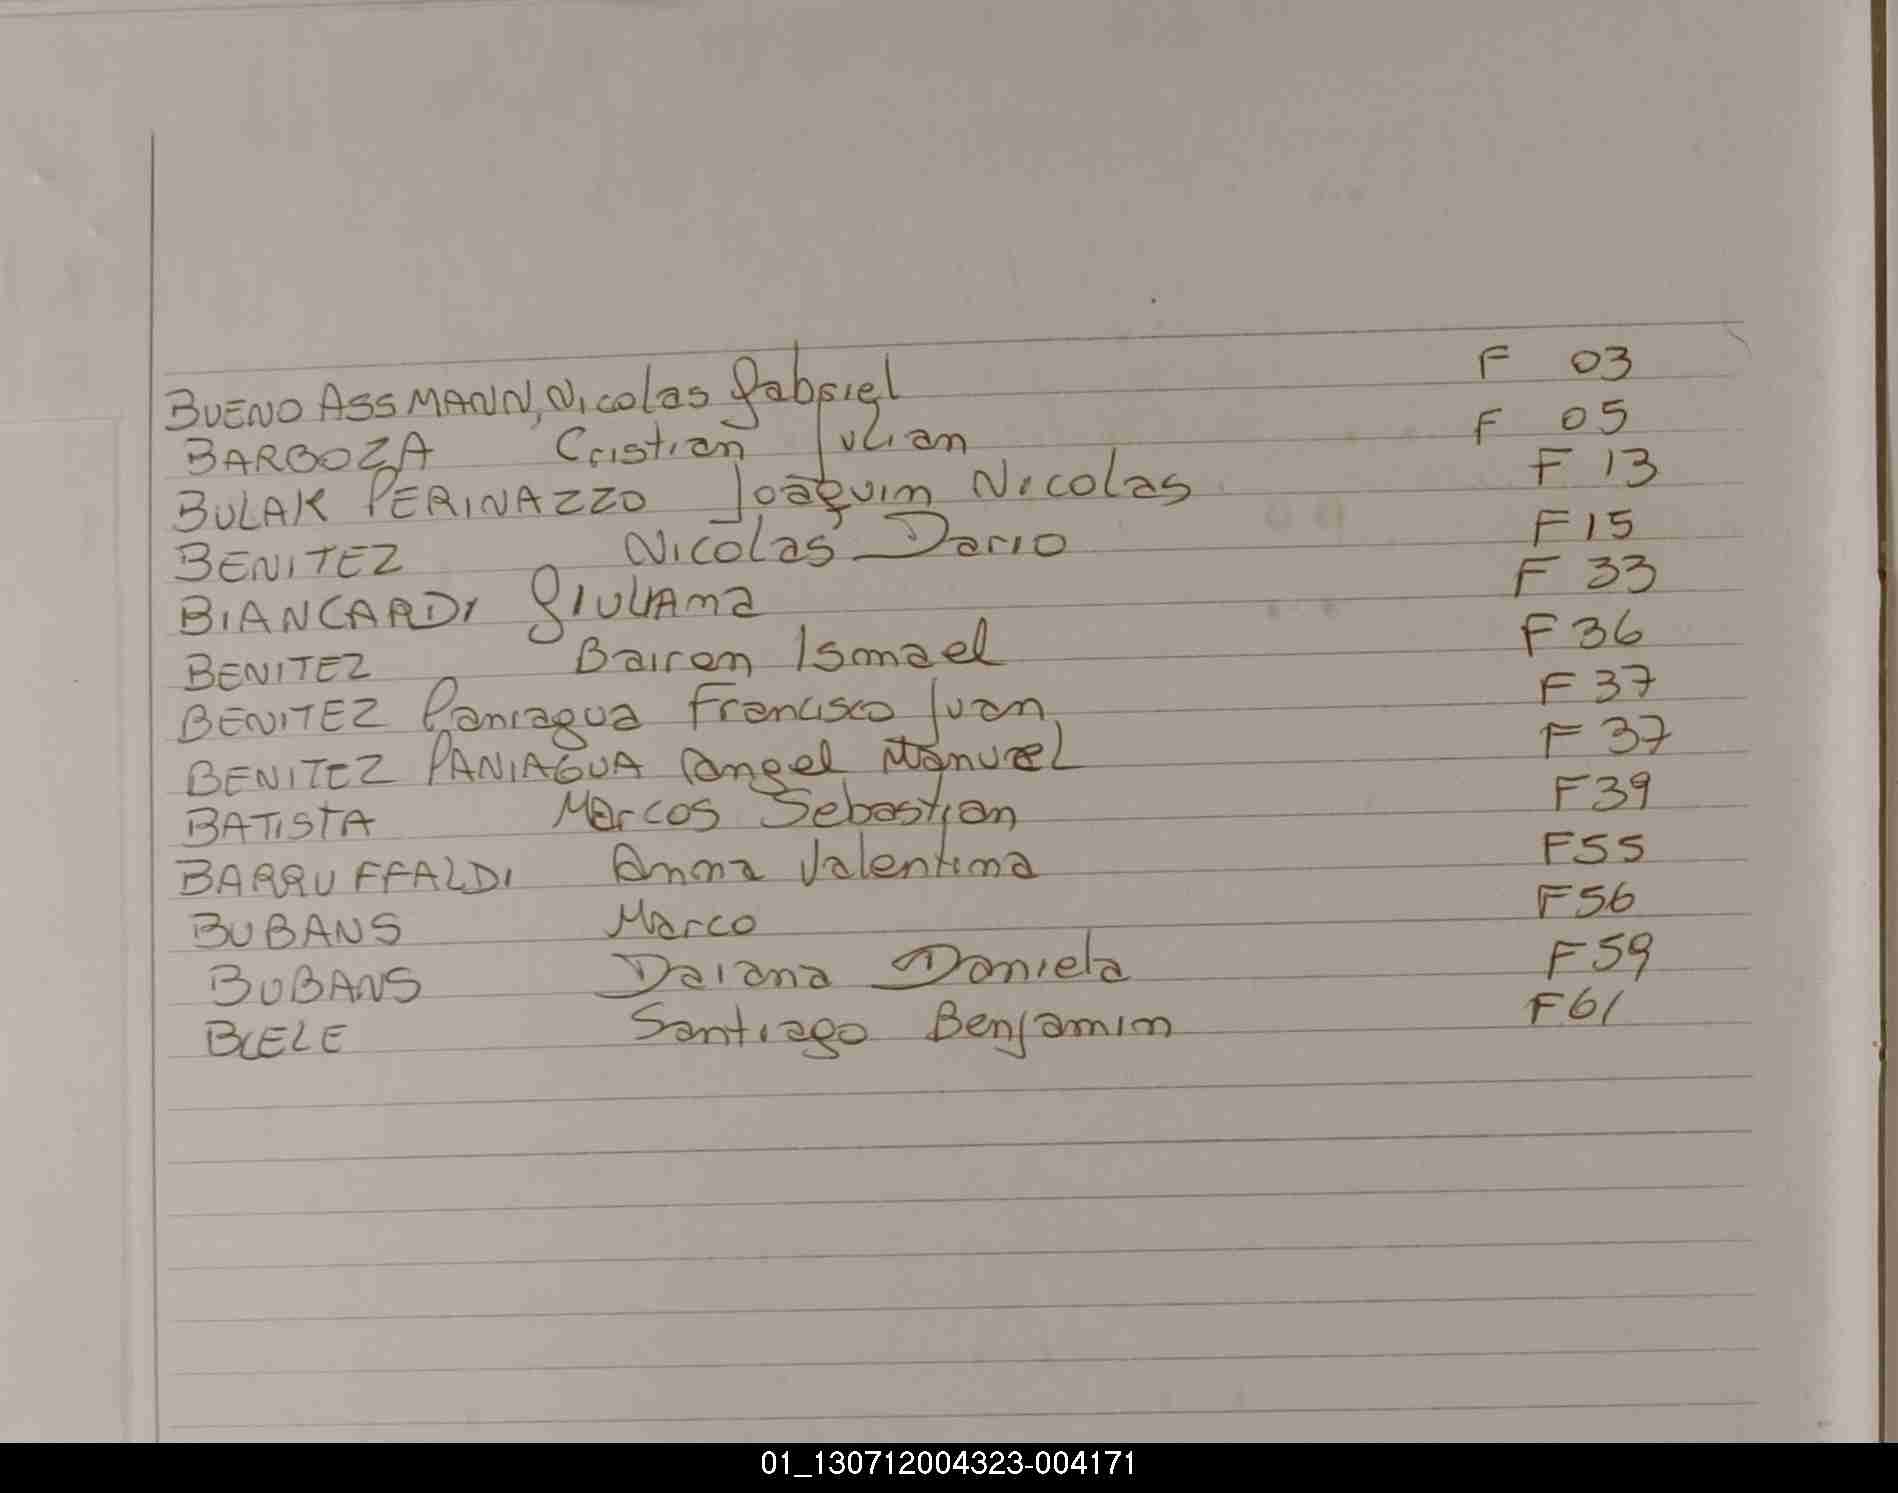 BUENO ASSMANN, Nicolas Gabriel F 03
BARBOZA Cristian Julian F 05
BULAK PERINAZZO Joaquim Nicolas F 13
BENITEZ Nicolas Dario F 15
BIANCARDI GIULIAna F 33
BENITEZ Bairon Ismael F 36
BENITEZ Paniagua Francisco Juan F 37
BENITEZ PANIAGUA Angel Manuel F 37
BATISTA Marcos Sebastian F 39
BARRUFFALDI Anna Valentina F 55
BUBANS Marco F 56
BUBANS Daiana Daniela F 59
Santiago Benjamin F 61
01_130712004323-004171